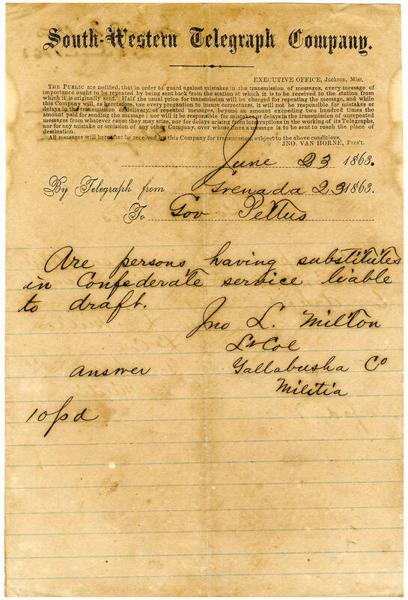 South-Western Telegraph Company.
EXECUTIVE OFFICE, Jackson, Miss.
THE PUBLIC are notified, that in order to guard against mistakes in the transmission of messages, every message of
importance ought to be repeated by being sent back from the station at which it is to be received to the station from
which it is originally sent. Half the usual price for transmission will be charged for repeating the message, and while
this Company will, as heretofore, use every precaution to insure correctness, it will not be responsible for mistakes or
delays in the transmission or delivery of repeated messages, beyond an amount exceeding five hundred times the
amount paid for sending the message; nor will it be responsible for mistakes or delays in the transmission of unrepeated
messages from whatever cause they may arise, nor for delays arising from interruptions in the working of its Telegraphs,
nor for any mistake or omission of any other Company, over whose lines a message is to be sent to reach the place of
destination.
All messages will hereafter be received by this Company for transmission, subject to the above conditions.
JNO. VAN HORNE, Pres't.
June 23 1863.
By Telegraph from Grenada 23 1863.
To Gov Pettus
Are persons having substitutes
in Confederate service liable
to draft.
Jno L. Milton
Lt Col
answer Yallabusha Co
Militia
10 pd